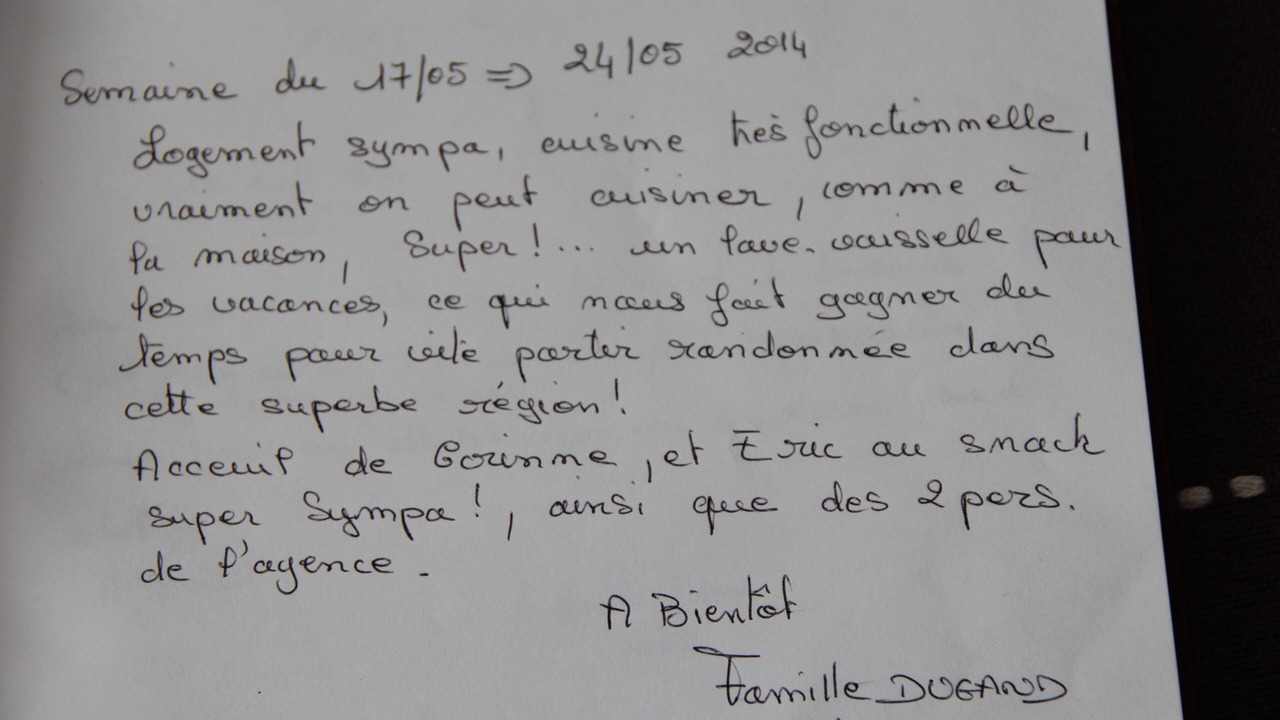 Semaine du 17/05 => 24/05 2014
Logement sympa, cuisine très fonctionnelle,
vraiment on peut cuisiner, comme à
la maison, Super!... un lave-vaisselle pour
les vacances, ce qui nous fait gagner du
temps pour vite partir randonnée dans
cette superbe région!
Acceuil de Corinne, et Eric au snack
super Sympa!, ainsi que des 2 pers.
de l'agence.
A Bientôt
Famille DUGAND